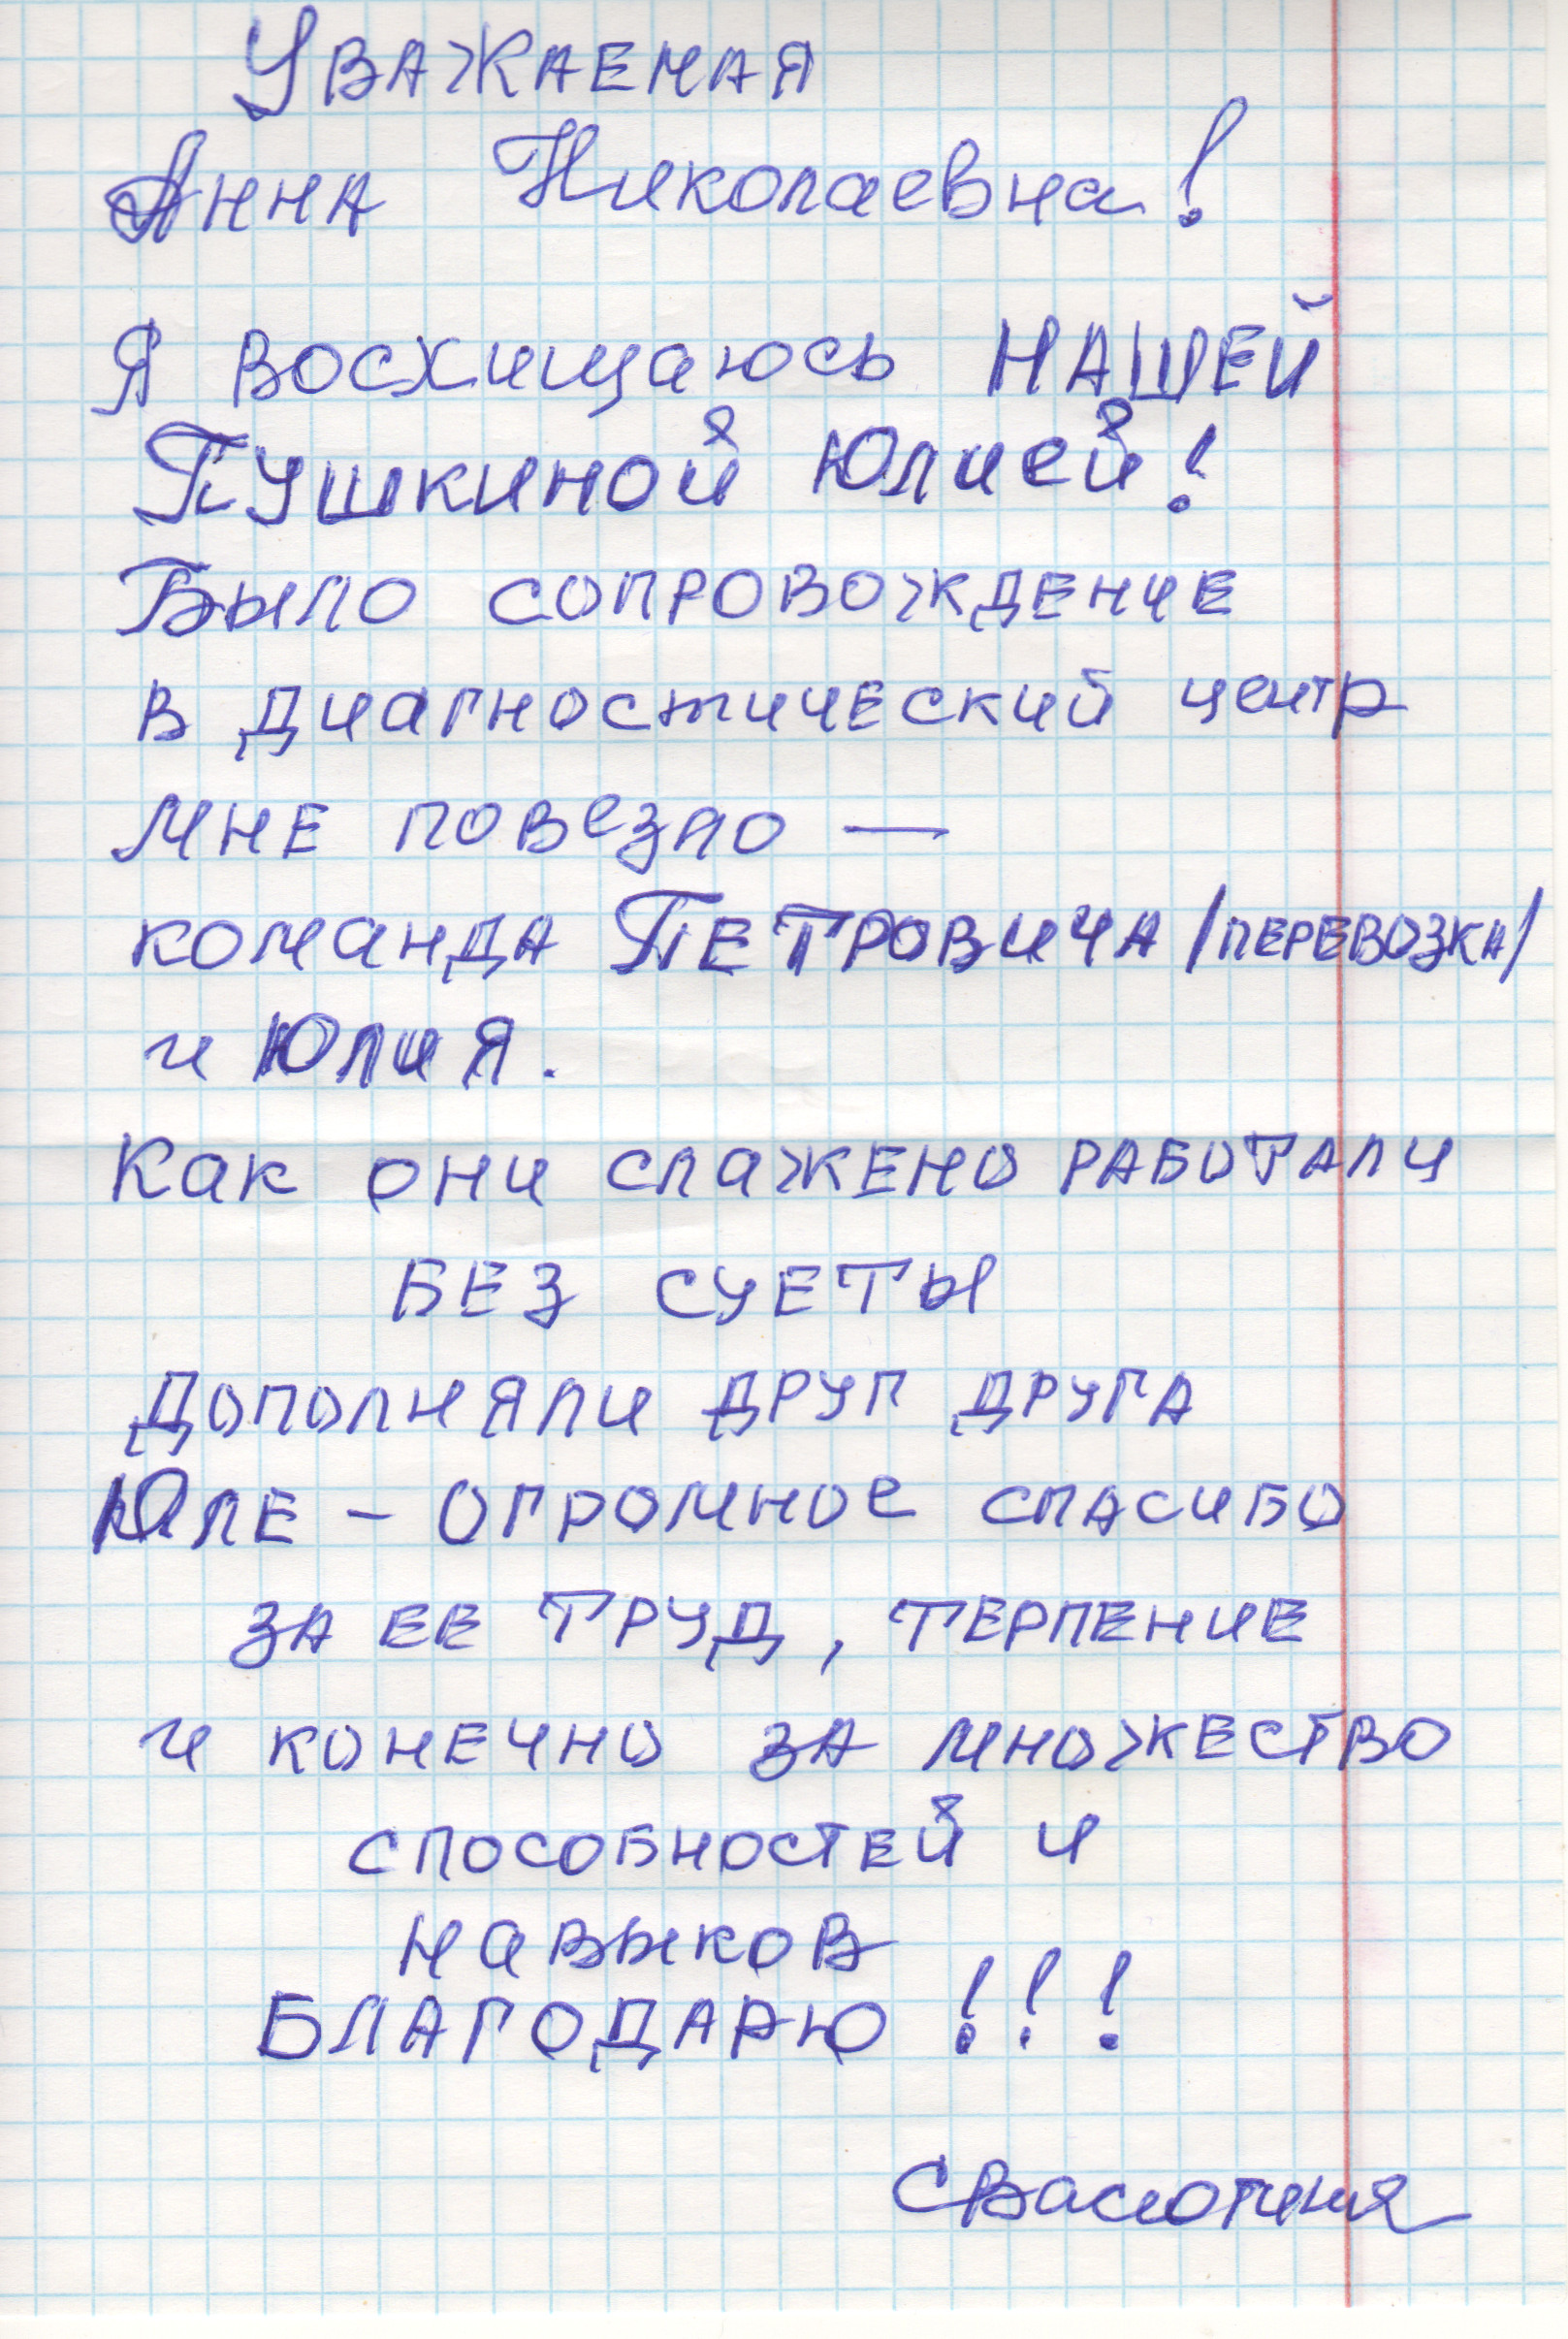 Уважаемая
Анна Николаевна!
Я восхищаюсь НАШЕЙ
Пушкиной Юлией!
Было сопровождение
в диагностический центр
Мне повезло —
команда ПЕТРОВИЧА /ПЕРЕВОЗКА/
и Юлия.
Как они слажено работали
БЕЗ СУЕТЫ
Дополняли друг друга
Юле – огромное спасибо
за ее труд, терпение
и конечно за множество
способностей и
навыков
БЛАГОДАРЮ!!!